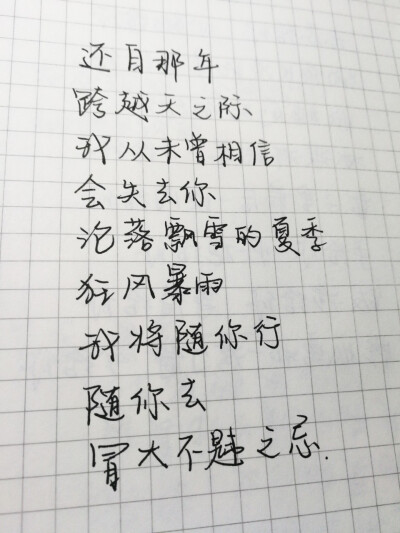 还自那年
跨越天之际
我从未曾相信
会失去你
沦落飘雪的夏季
狂风暴雨
我将随你行
随你去
冒大不韪之忌.